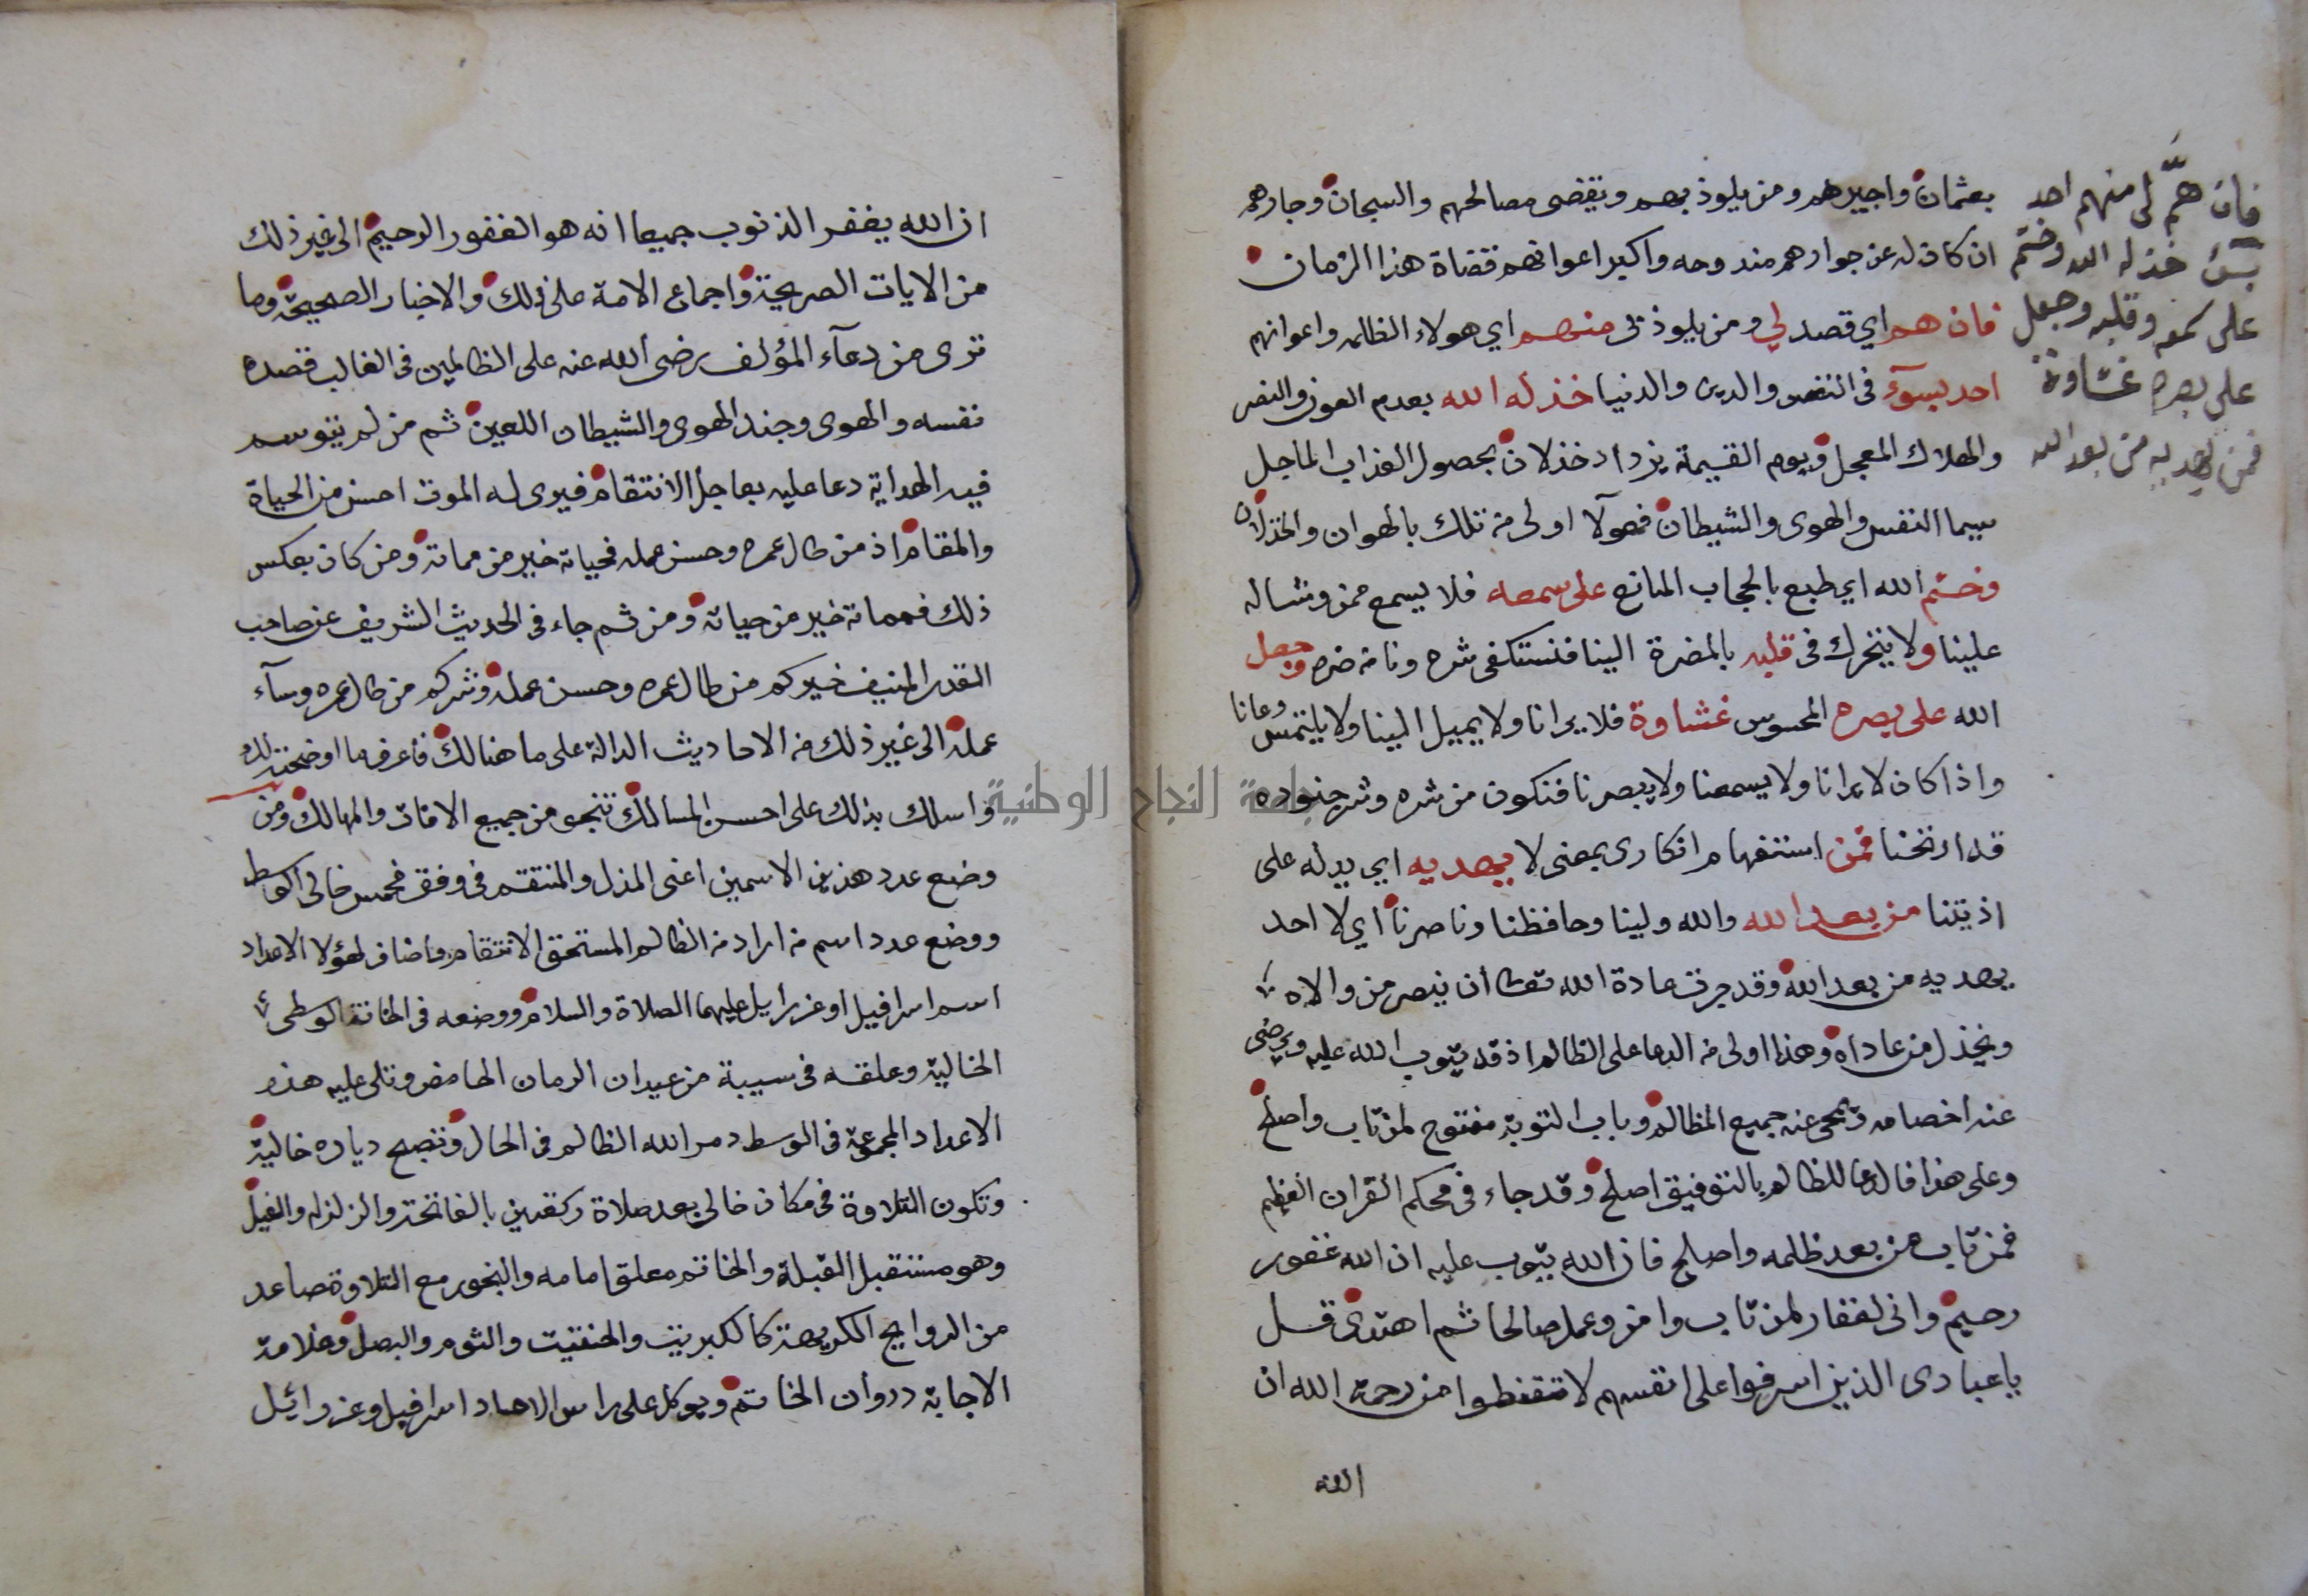 فان همَّ لي منهم احد
بسئ خذله الله وختم
على سمعه وقلبه وجعل
على بصره غشاوة
فمن يهديه من بعد الله
بعثمان واجيرهم ومن يلوذ بهم ويقضى مصالحهم والسجان وجارهم
ان كان له عن جوارهم مندوحه واكبر اعوانهم قضاة هذا الزمان
فان هم اي قصد لي ومن يلوذ بى منهم اي هولاء الظالمه واعوانهم
احد بسوء فى النفس والدين والدنيا خذله الله بعدم العون والنصر
والهلاك المعجل ويوم القيمة يزداد خذلان بحصول العذاب الماجل
سيما النفس والهوى والشيطان فهولآ اولى من تلك بالهوان والخذلان
وختم الله اي طبع بالحجاب المانع على سمعه فلا يسمع ممن وشا له
علينا ولا يتحرك فى قلبه بالمضرة الينا فنستكفى شره ونامن ضره وجعل
الله على بصره المحسوس غشاوة فلا يرانا ولا يميل الينا ولا يلتمس وعانا
واذا كان لا يرانا ولا يسمعنا ولا يبصرنا فنكون من شره وشر جنوده
جامعة النجاح الوطنية
قد ارتحنا فمن استفهام انكارى بمعنى لا يهديه اي يدله على
اذيتنا من بعد الله والله ولينا وحافظنا وناصرنا اي لا احد
يهديه من بعد الله وقد جرت عادة الله تعالى أن ينصر من والاه
ويخذل من عاداه وهذا اولى من الدعا على الظالم اذ قد يتوب الله عليه ويرضى
عنه اخصامه وتمحى عنه جميع المظالم وباب التوبة مفتوح لمن تاب واصلح
وعلى هذا فالدعا للظالم بالتوفيق اصلح وقد جاء فى محكم القران العظيم
فمن تاب من بعد ظلمه واصلح فان الله يتوب عليه ان الله غفور
رحيم وانى لغفار لمن تاب وامن وعمل صالحا ثم اهتدى قل
يا عبادى الذين اسرفوا على انفسهم لا تقنطوا من رحمة الله ان
الله
ان الله يغفر الذنوب جميعا انه هو الغفور الرحيم الى غير ذلك
من الايات الصريحة واجماع الامة على ذلك والاخبار الصحيحة وما
ترى من دعآء المؤلف رضى الله عنه على الظالمين فى الغالب قصده
نفسه والهوى وجند الهوى والشيطان اللعين ثم من لم يتوسم
فيه الهداية دعا عليه بعاجل الانتقام فيرى له الموت احسن من الحياة
والمقام اذ من طال عمره وحسن عمله فحياته خير من مماته ومن كان بعكس
ذلك فمماته خير من حياته ومن ثم جاء فى الحديث الشريف عن صاحب
القدر المنيف خيركم من طال عمره وحسن عمله وشركم من طال عمره وسآء
عمله الى غير ذلك من الاحاديث الدالة على ما هنالك فاعرف ما اوضحته لك
واسلك بذلك على احسن المسالك تنجى من جميع الافات والمهالك ومن
وضع عدد هذين الاسمين اعنى المذل والمنتقم فى وفق مخمس خالى الوسط
ووضع عدد اسم من اراد من الظالم المستحق الانتقام واضاف لهؤلا الاعداد
اسم اسرافيل او عزرايل عليهما الصلاة والسلام ووضعه فى الخانة الوسطى
الخالية وعلقه فى سيبة من عيدان الرمان الحامض وتلى عليه هذه
الاعداد المجموعة فى الوسط دمر الله الظالم فى الحال وتصبح دياره خالية
وتكون التلاوة فى مكان خالى بعد صلاة ركعتين بالفاتحة والزلزله والفيل
وهو مستقبل القبلة والخاتم معلق امامه والبخور مع التلاوة صاعد
من الروايح الكريهة كالكبريت والحنتيت والثوم والبصل وعلامة
الاجابة دروان الخاتم ويوكل على راس الاعداد اسرافيل وعزرائيل